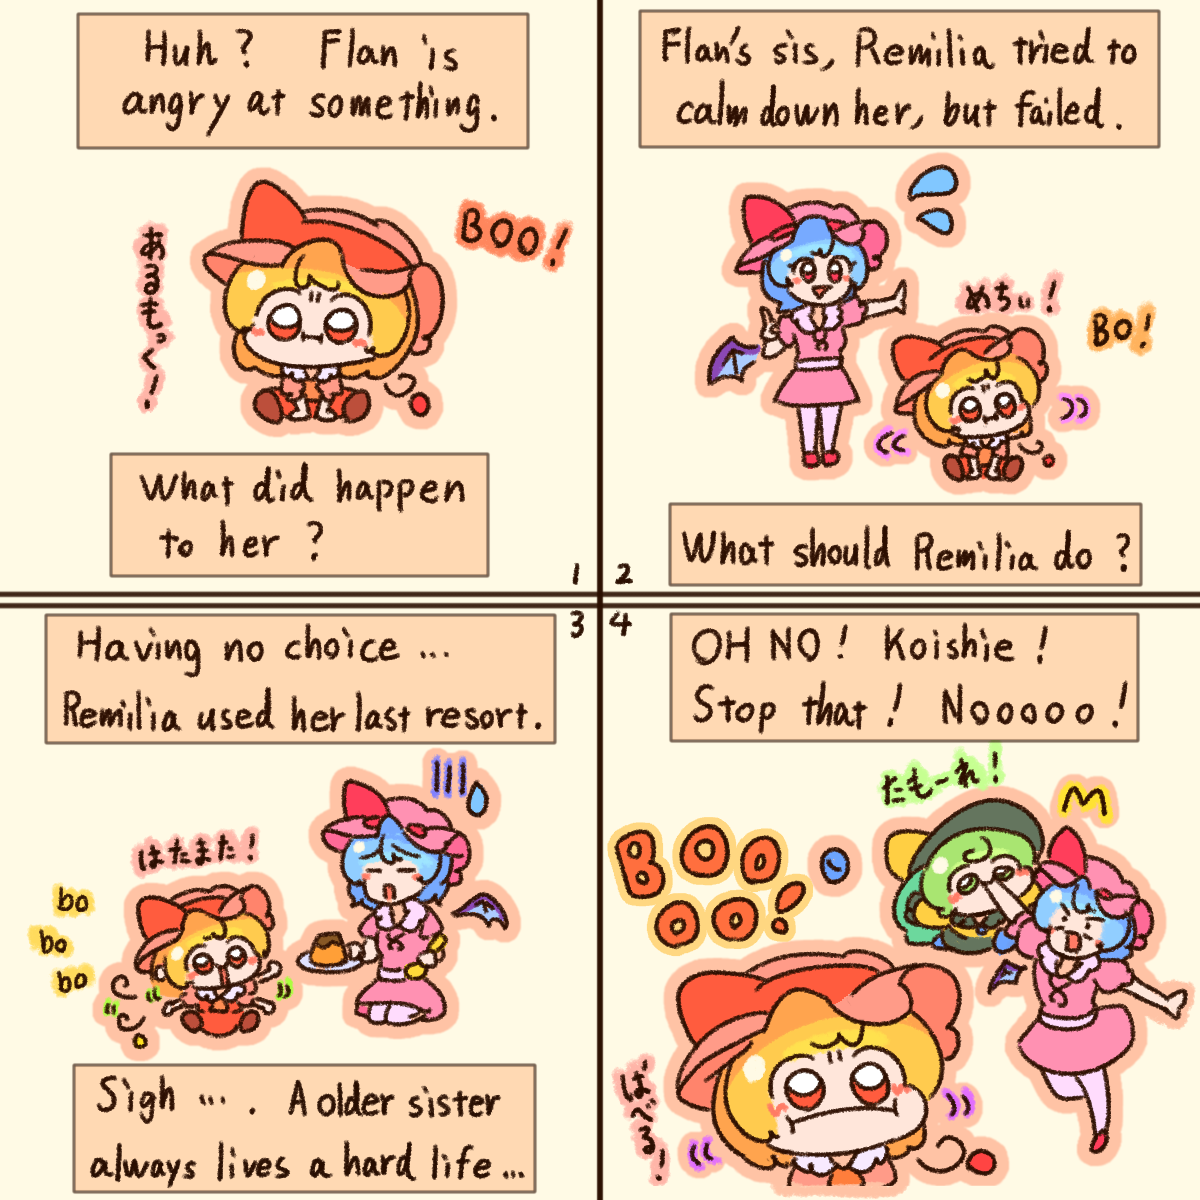 Huh? Flan is
angry at something.
BOO!
あるもっく!
What did happen
to her?
1
Flan's sis, Remilia tried to
calm down her, but failed.
めちぃ!
BO!
What should Remilia do?
2
Having no choice...
Remilia used her last resort.
3
はたまた!
bo
bo
bo
Sigh ... . A older sister
always lives a hard life...
4
OH NO! Koishie!
Stop that! Nooooo!
たもーれ!
BOO
OO!
ばべる!